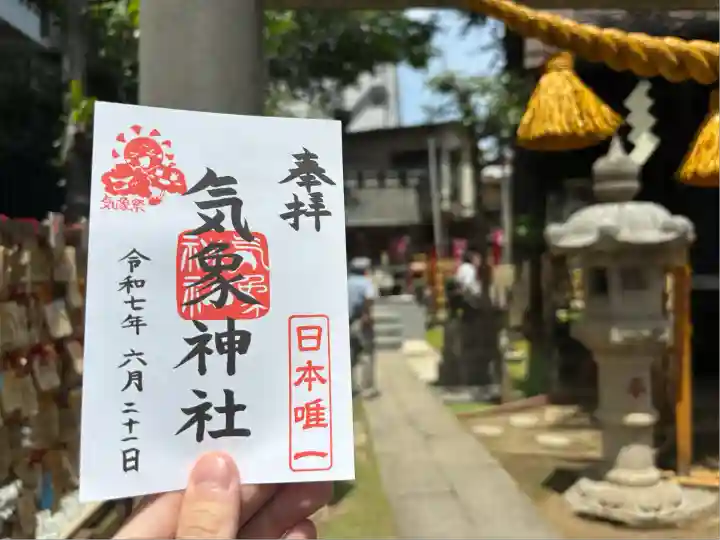 奉拝
日本唯一
気象神社
気象神社
気象祭
令和七年 六月 二十一日